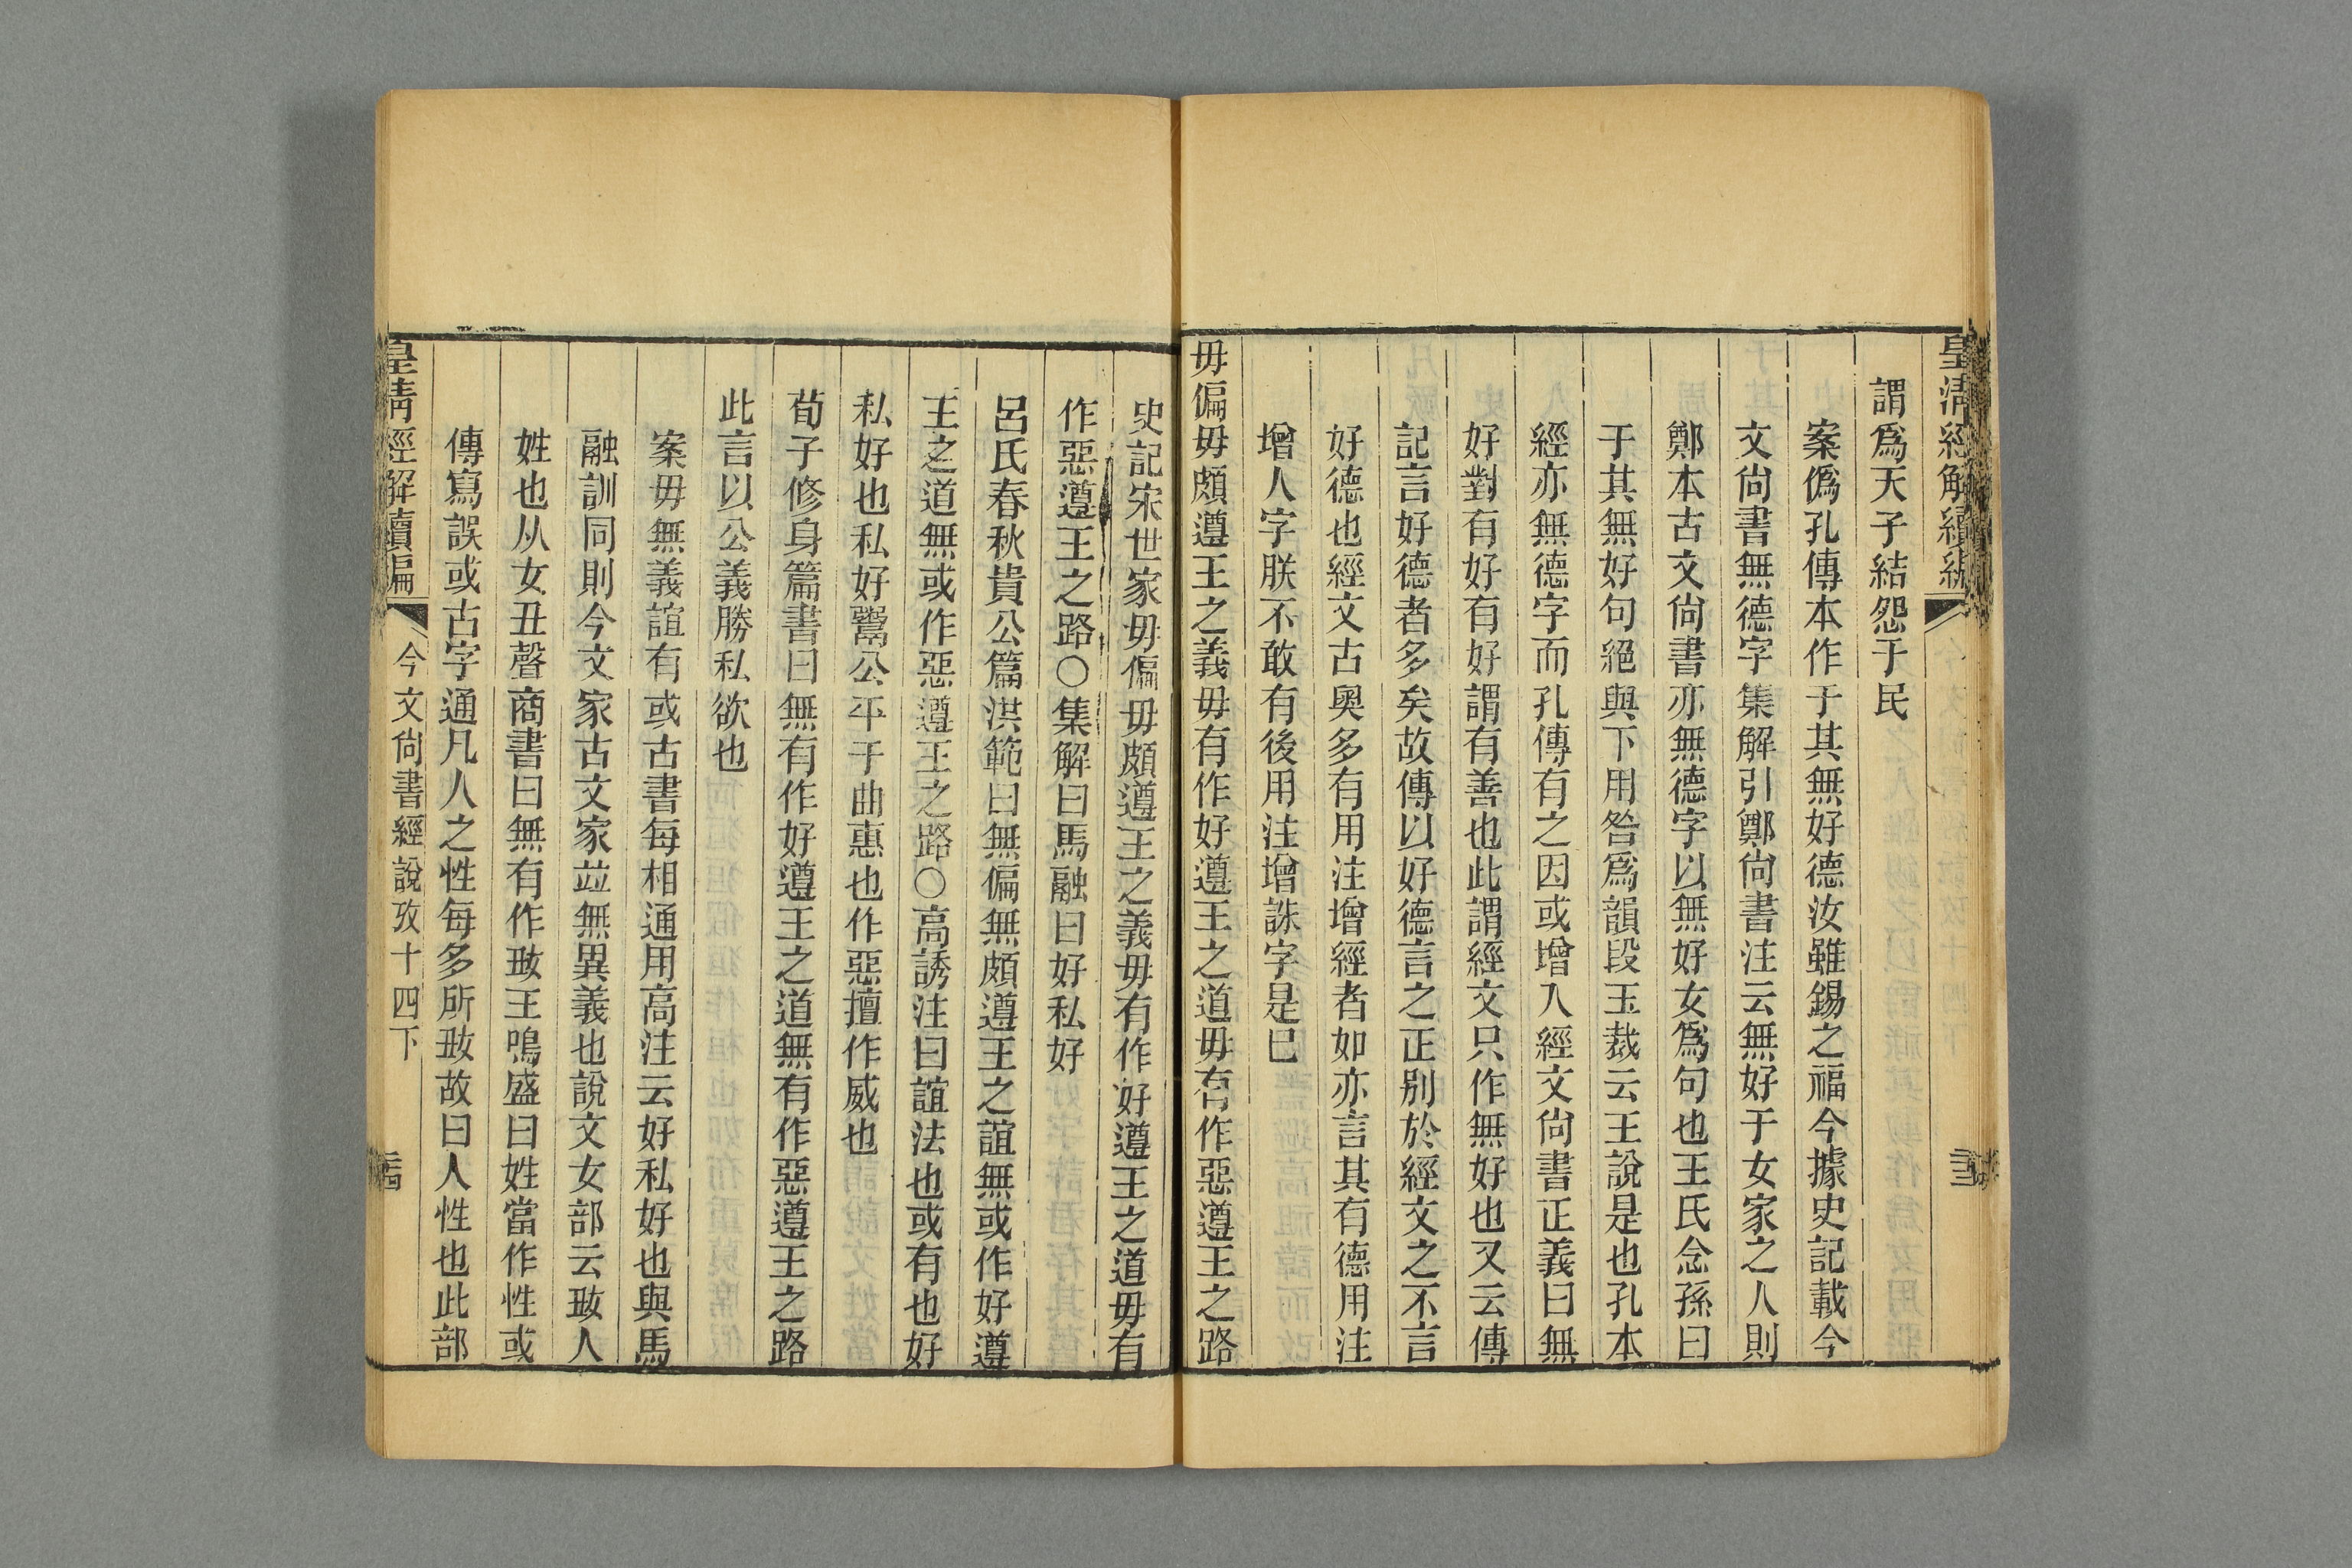 皇清經解續編
謂爲天子結怨于民
案僞孔傳本作于其無好德汝雖錫之福今據史記載今
文尙書無德字集解引鄭尙書注云無好于女家之人則
鄭本古文尙書亦無德字以無好女爲句也王氏念孫曰
于其無好句絕與下用咎爲韻段玉裁云王說是也孔本
經亦無德字而孔傳有之因或增入經文尙書正義曰無
好對有好有好謂有善也此謂經文只作無好也又云傳
記言好德者多矣故傳以好德言之正别於經文之不言
好德也經文古奧多有用注增經者如亦言其有德用注
增人字朕不敢有後用注增誅字是巳
毋偏毋頗遵王之義毋有作好遵王之道毋有作惡遵王之路
史記宋世家毋偏毋頗遵王之義毋有作好遵王之道毋有
作惡遵王之路○集解曰馬融曰好私好
呂氏春秋貴公篇洪範曰無偏無頗遵王之誼無或作好遵
王之道無或作惡遵王之路○高誘注曰誼法也或有也好
私好也私好鬻公平于曲惠也作惡擅作威也
荀子修身篇書曰無有作好遵王之道無有作惡遵王之路
此言以公義勝私欲也
案毋無義誼有或古書每相通用高注云好私好也與馬
融訓同則今文家古文家竝無異義也說文女部云㛿人
姓也从女丑聲商書曰無有作㛿王鳴盛曰姓當作性或
傳寫誤或古字通凡人之性每多所㛿故曰人性也此部
皇清經解續編
今文尙書經說攷十四下